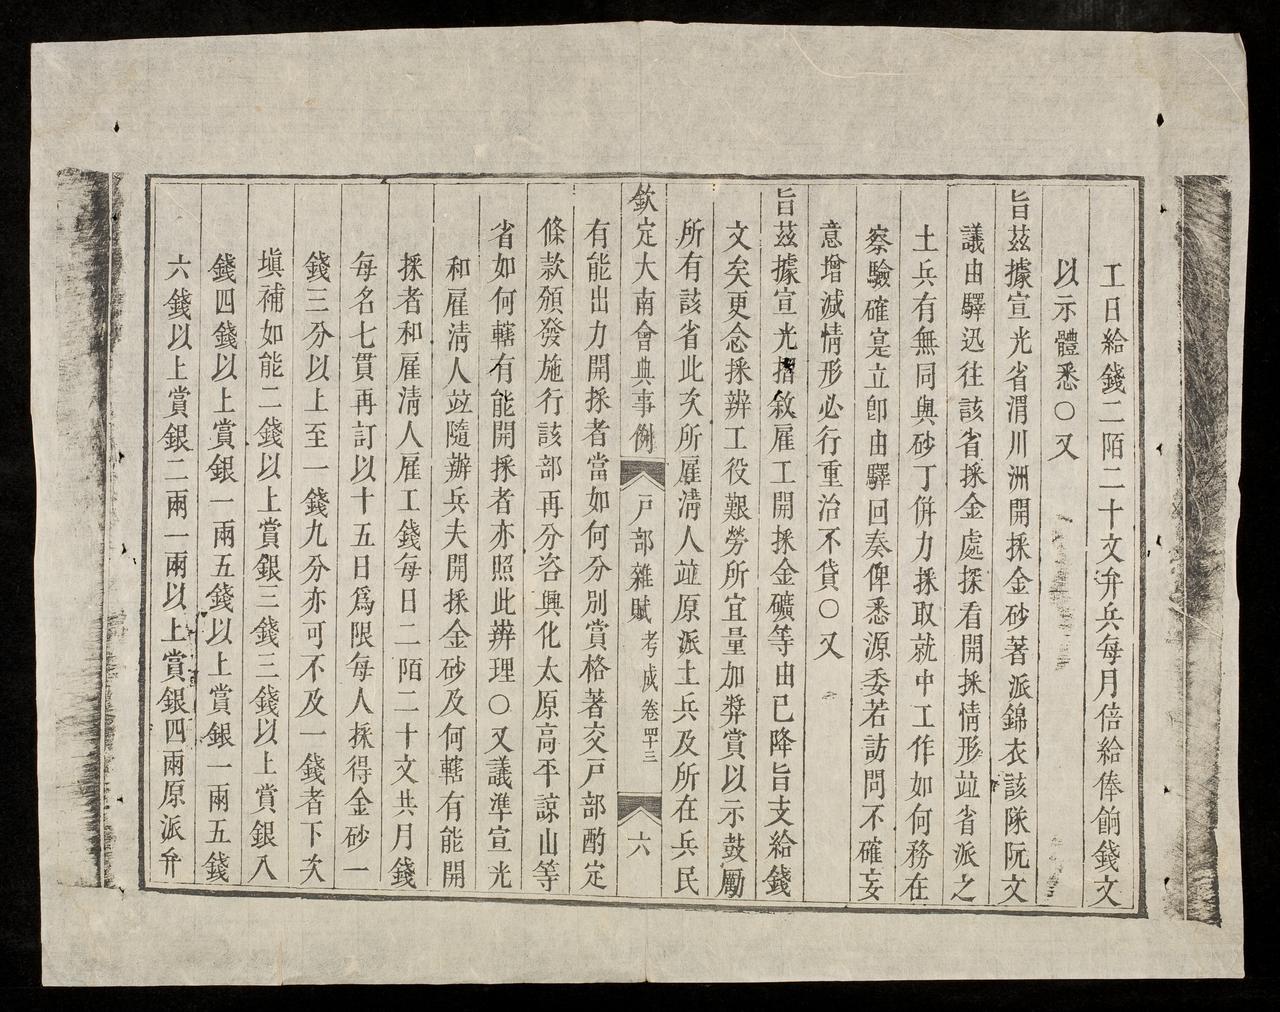 工日給錢二陌二十文弁兵每月倍給俸餉錢文
以示體悉○又
旨茲據宣光省渭川洲開採金砂著派錦衣該隊阮文
議由驛迅往該省採金處探看開採情形並省派之
土兵有無同與砂丁併力採取就中工作如何務在
察驗確寔立卽由驛回奏俾悉源委若訪問不確妄
意增減情形必行重治不貸○又
旨茲據宣光摺敘雇工開採金礦等由已降旨支給錢
文矣更念採辦工役艱勞所宜量加獎賞以示鼓勵
所有該省此次所雇淸人並原派土兵及所在兵民
欽定大南會典事例 戸部雜賦 考成卷四十三 六
有能出力開採者當如何分別賞格著交戸部酌定
條款頒發施行該部再分咨興化太原高平諒山等
省如何轄有能開採者亦照此辦理○又議準宣光
和雇淸人並隨辦兵夫開採金砂及何轄有能開
採者和雇淸人雇工錢每日二陌二十文共月錢
每名七貫再訂以十五日爲限每人採得金砂一
錢三分以上至一錢九分亦可不及一錢者下次
塡補如能二錢以上賞銀三錢三錢以上賞銀八
錢四錢以上賞銀一兩五錢以上賞銀一兩五錢
六錢以上賞銀二兩一兩以上賞銀四兩原派弁